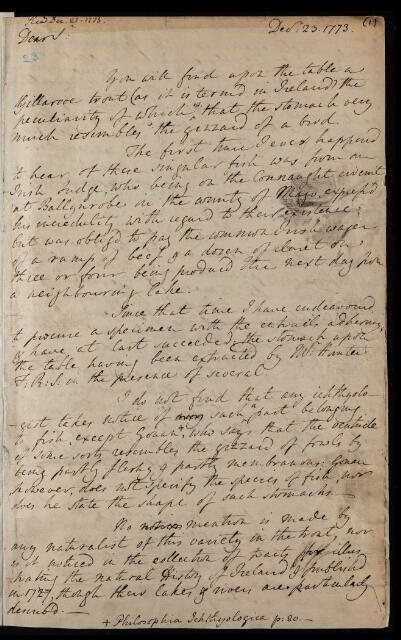 Read Dec. 23. 1773.
Decr. 23. 1773. (1)
Dear Sr.
23
You will find upon the table a
Gillaroe trout (as it is termed in Ireland) the
peculiarity of which is that the stomach very
much resembles the gizzard of a bird.
The first time I ever happened
to hear of these singular fish was from an
Irish Judge, who being on the Connaught circuit
at Ballynrobe in the county of Mayo, express'd
his incredulity with regard to their existence;
but was oblig'd to pay the common Irish wager
of a rump of beef & a dozen of claret on
three or four being produced the next day from
a neighbouring lake.
Since that time I have endeavoured
to procure a specimen with the entrails adhering,
& have at last succeeded, the stomach upon
the table having been extracted by Mr. Hunter
F. R. S. in the presence of several
I do not find that any ichthyolo-
gist takes notice of such part belonging
to fish, except Gouan+, who says that the ventricle
of some sorts resembles the gizzard of fowls by
being partly fleshy & partly membranous: Gouan
however, does not specify the species of fish, nor
does he state the shape of such stomachs —
No mention is made by
any naturalist of this variety in the trout, nor
is it noticed in the collection of tracts illus-
trating the natural History of Ireland & published
in 1727, though their lakes & rivers are particularly
describ'd. —
+ Philosophia Ichthyologica p. 80. —